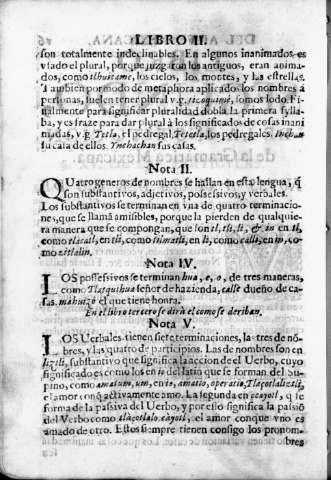 LIBRO II.
son totalmente indeclinables. En algunos inanimados, es
vsado el plural, porque juzgaron los antiguos, eran anima-
dos, como ilhuicame, los cielos, los montes, y las estrellas.
Tambien por modo de metaphora aplicados los nombres à
personas, suelen tener plural v.g. ticoquimê, somos lodo. Fi-
nalmente para significar pluralidad dobla la primera sylla-
ba, y es fraze para dar plural à los significados de cosas inani
madas, v.g. Tetla, el pedregal, Tetetla, los pedregales. Inchan
su casa de ellos. Inchachan sus casas.
Nota II.
QUatro generos de nombres se hallan en esta lengua, q̃
son substantivos, adjetivos, possessivos, y verbales.
Los substantivos se terminan en vna de quatro terminacio-
nes, que se llamã amisibles, porque la pierden de qualquie-
ra manera que se compongan, que son tl, tli, li, & in en tl,
como tlacatl, en tli, como tilmatli, en li, como calli, en in, co-
mo zitlalin.
Nota IV.
LOS possessivos se terminan huâ, e, o, de tres maneras,
como Tlatquihua señor de hazienda, calle dueño de ca-
sas. mahuizô el que tiene honra.
En el libro tercero se dirà el como se deriban.
Nota V.
LOS Uerbales tienen siete terminaciones, las tres de nõ-
bres, y las quatro de participios. Las de nombres son en
liztli, substantivo que significa la accion de el Uerbo, cuyo
significado es como los en io del latin que se forman del Su-
pino, como amatum, um, en is, amatio, operatio, Tlaçotlaliztli,
el amor conq̃ activamente amo. La segunda en ocayotl, que se
forma de la pasiva del Uerbo, y por esso significa la passiõ
del Verbo como tlaçotlaloçayotl, el amor conque vno es
amado de otro. Estos siempre tienen consigo los pronom-
bres